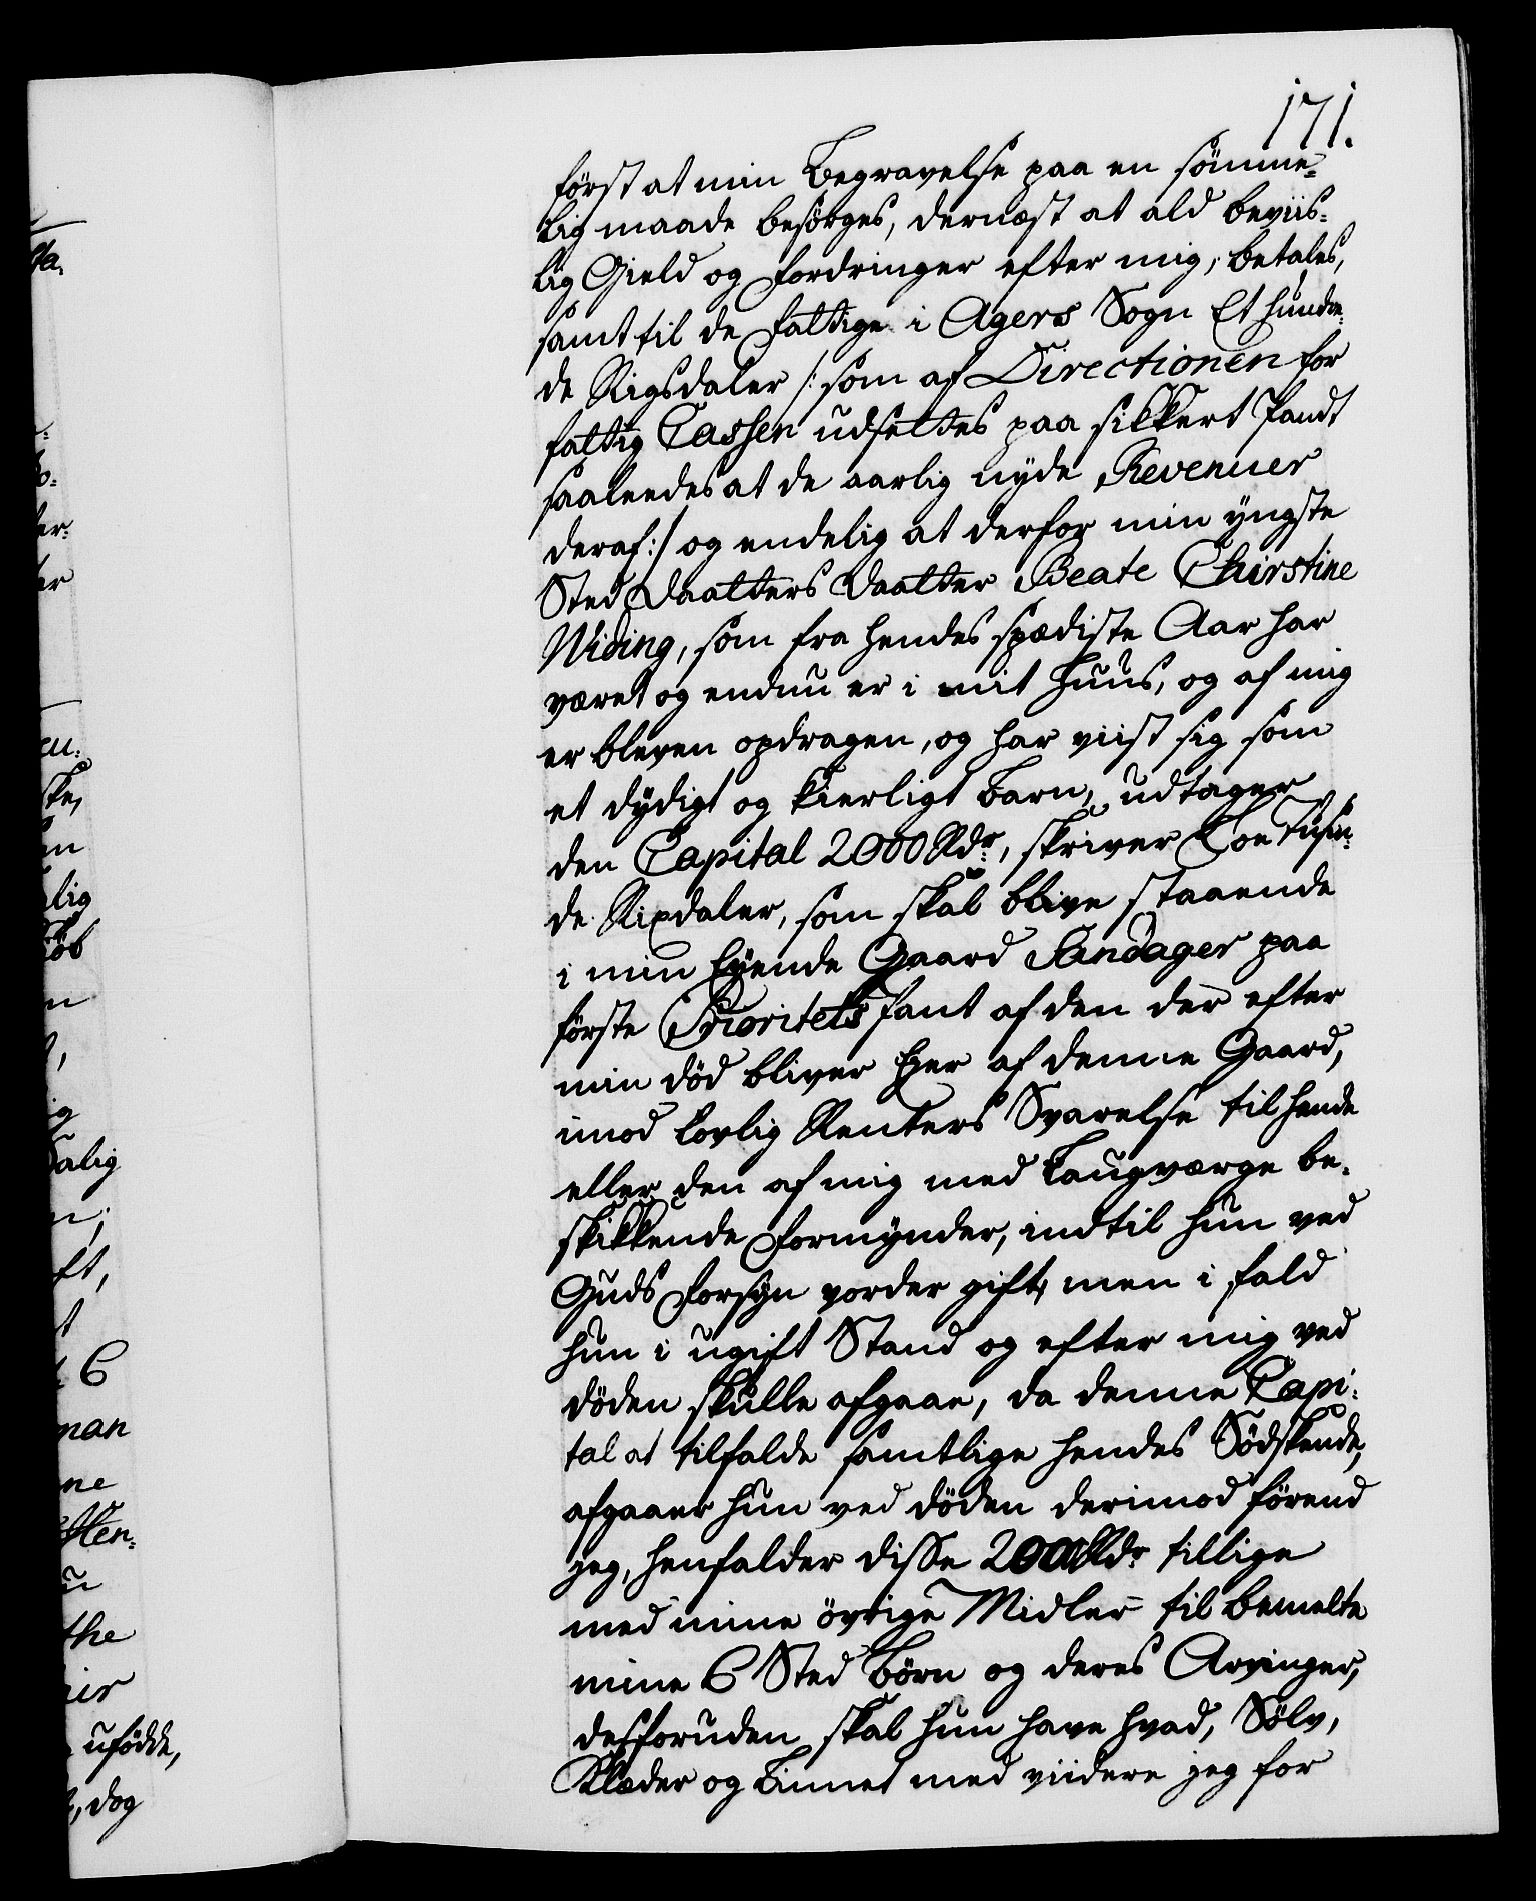 171.
först at min Begravelse paa en sömme=
lig maade besörges, dernæst at ald beviis=
lig Gield og Fordringer efter mig, betales,
samt til de Fattige i Agers Sogn Et hundre=
de Rigsdaler /: som af Directionen for
fattig Cassen udsættes paa sikkert Pandt
saaleedes at de aarlig nyde Revenuer
deraf :/ og endelig at derfor min yngste
Sted Daatters Daatter Beate Chirstine
Widing, som fra hendes spædiste Aar har
været og endnu er i mit Huus, og af mig
er bleven opdragen, og har viist sig som
et dydigt og kierligt Barn, udtager
den Capital 2000 Rdr, skriver Toe Tusin=
de Rixdaler, som skal blive staaende
i min Eyende Gaard Sandager paa
förste Prioritets Pant af den der efter
min död bliver Eyer af denne Gaard,
imod lovlig Renters Svarelse til hende
eller den af mig med Laugværge be=
skikkende Formynder, indtil hun ved
Guds Forsyn vorder gift, men i fald
hun i ugift Stand og efter mig ved
döden skulle afgaae, da denne Capi=
tal at tilfalde samtlige hendes Södskende,
afgaaer hun ved döden derimod förend
jeg, henfalder disse 2000 Rdr tillige
med mine övrige Midler til bemelte
mine 6 Sted Börn og deres Arvinger,
desforuden skal hun have hvad, Sölv,
Klæder og Linnet med viidere jeg for